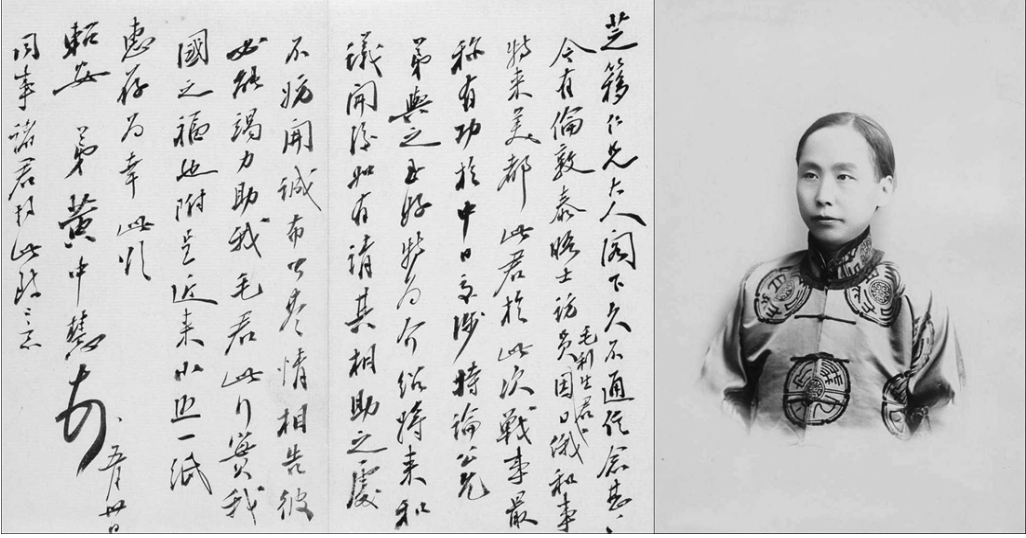 芝 仁兄大人阁下久不通信念甚
今有倫敦泰晤士訪員毛利生君因日俄和事
特来美都此君於此次戰事最
称有功於中日交涉持論公允
弟與之至好特為介紹將来和
議開後如有請其相助之處
不妨開誠布公尽情相告彼
必能竭力助我毛君此行實我
國之福也附呈近来小照一紙
惠存為幸此頌
軺安 弟黄中慧 五月廿日
同事諸君均此致意